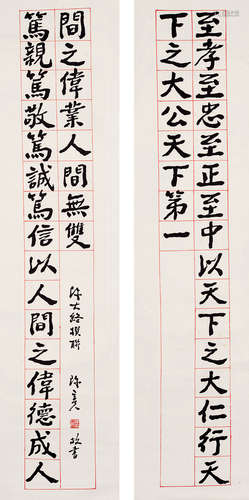 至孝至忠至正至中以天下之大仁行天
下之大公天下第一
篤親篤敬篤誠篤信以人間之偉德成人
間之偉業人間無雙